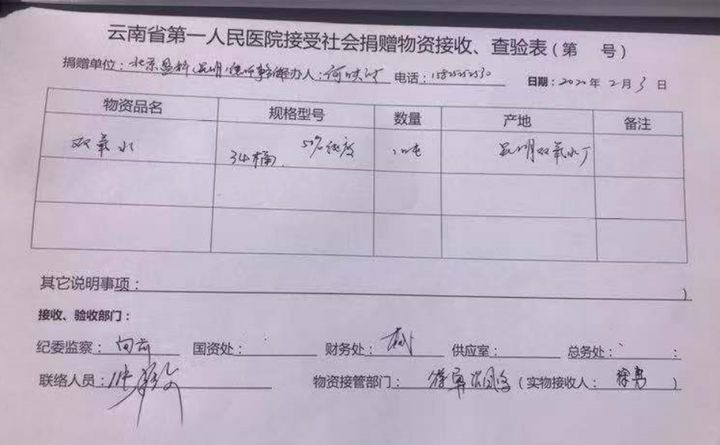 云南省第一人民医院接受社会捐赠物资接收、查验表（第 号）
捐赠单位：北京盈科（昆明）律师事务所 经办人： 电话： 日期：2020年2月3日
物资品名 规格型号 数量 产地 备注
双氧水 34桶 50%纯度 昆明双氧水厂
其它说明事项：
接收、验收部门：
纪委监察： 国资处： 财务处： 供应室： 总务处：
联络人员： 物资接管部门： （实物接收人： ）